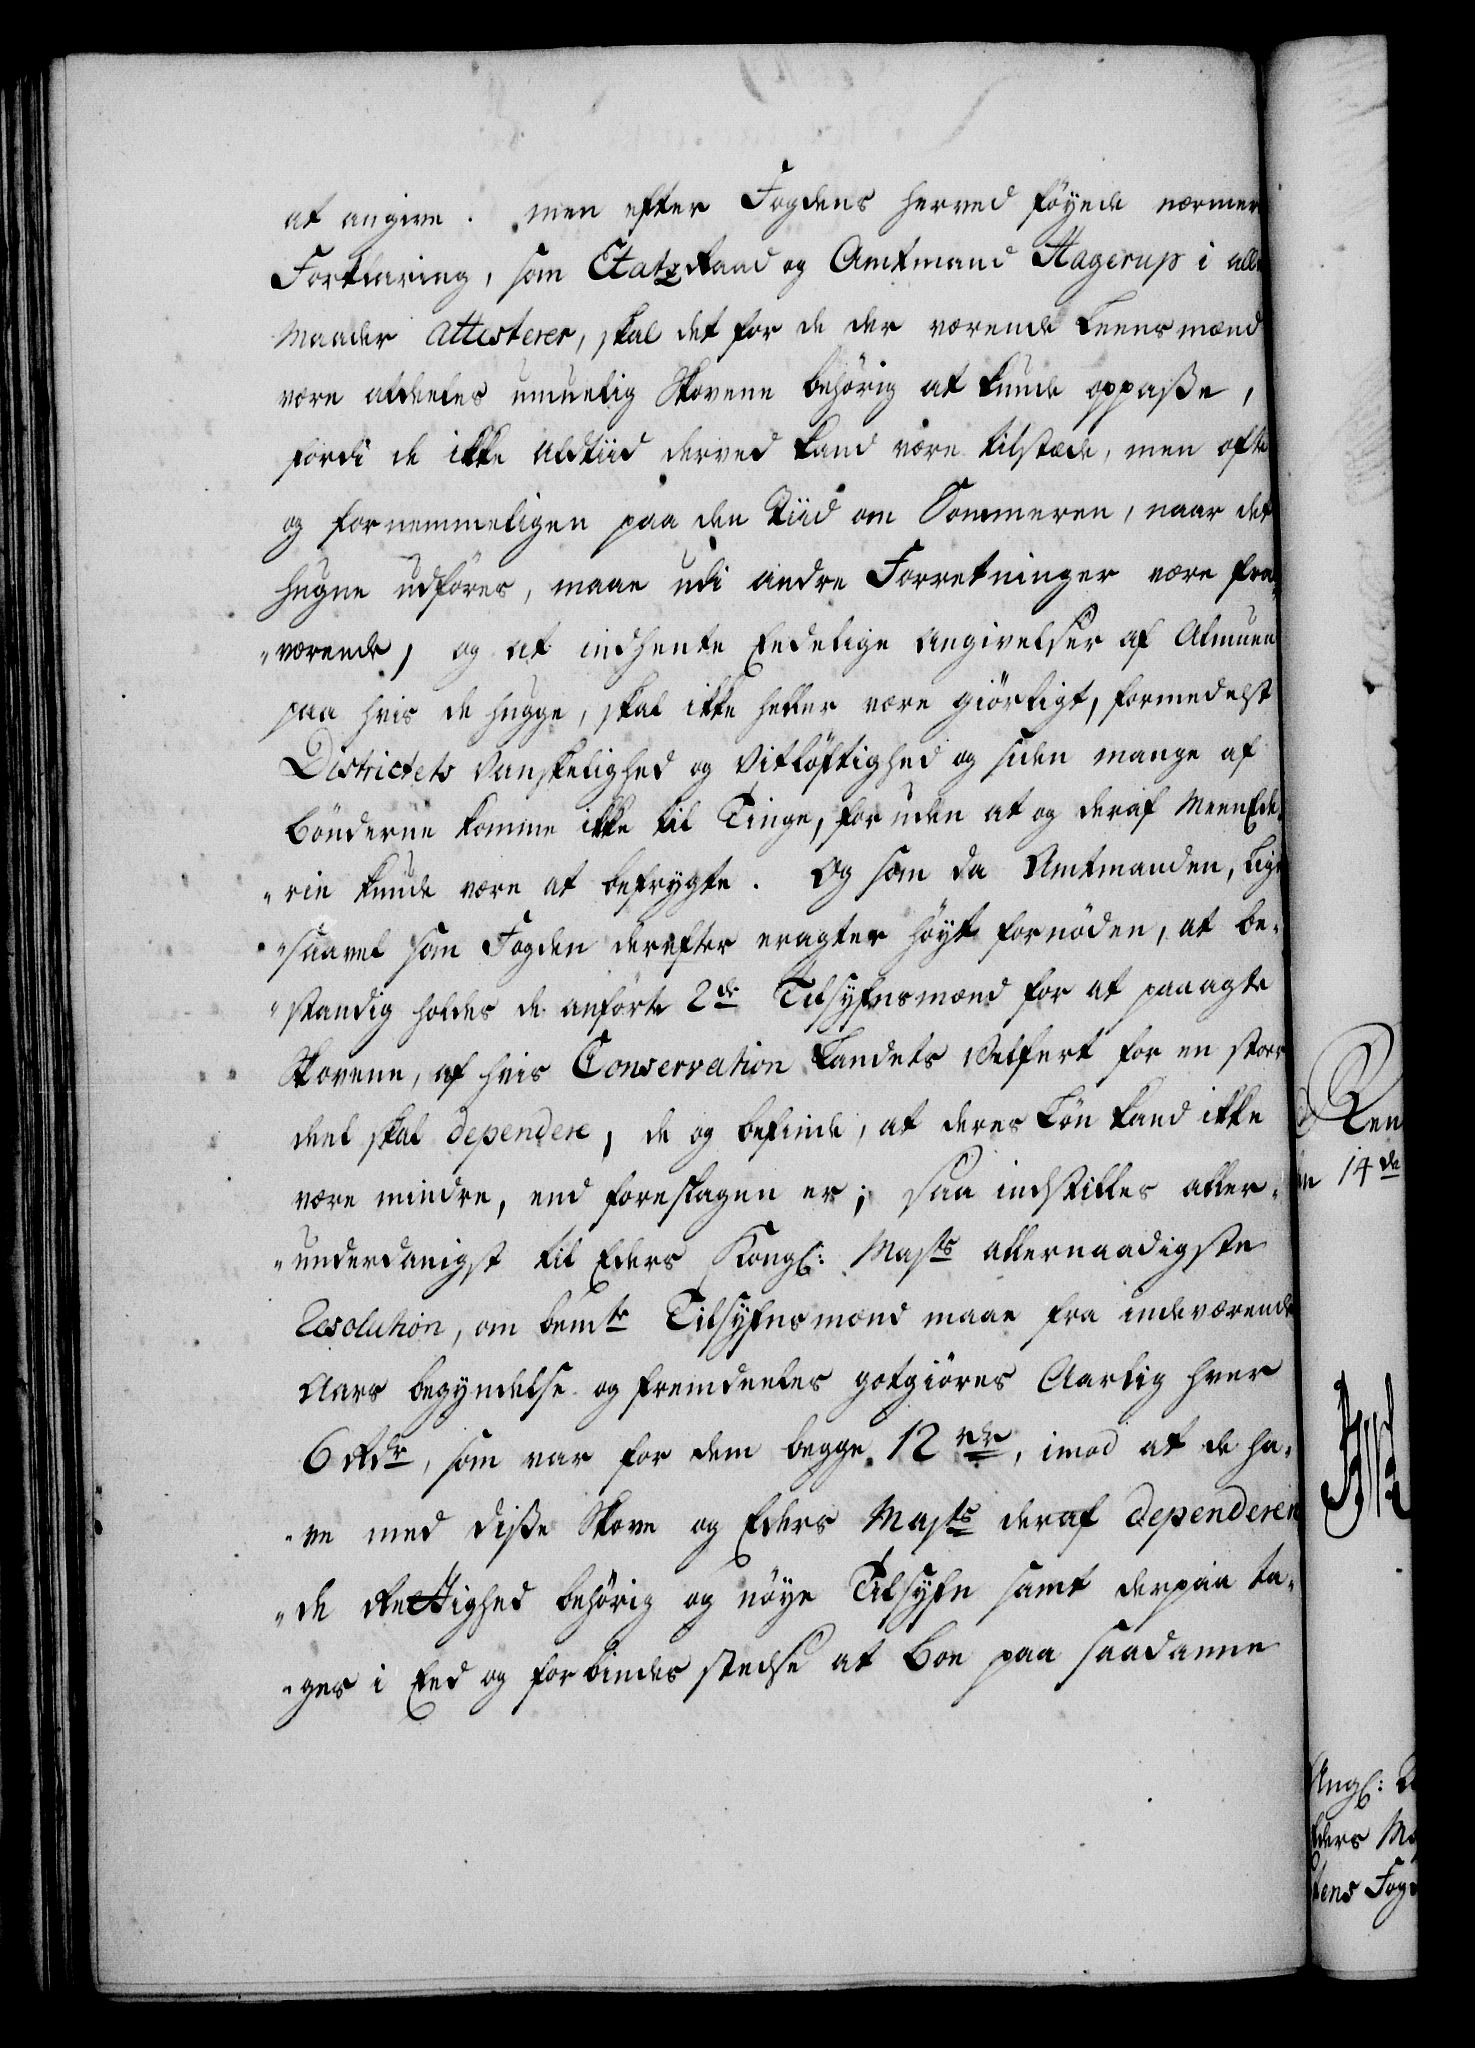 at angive. men efter Fogdens herved föyede nærmer
Forklaring, som EtatzRaad og Amtmand Hagerup i alle
Maader attesterer, skal det for de der værende Leensmænd
være aldeeles umuelig Skovene behörig at kunde oppasse,
fordi de ikke altiid derved kand være tilstæde, men ofte
og fornemmeligen paa den Tiid om Sommeren, naar det
hugne udföres, maae udi andre Forretninger være fra„
„værende, og at indhente Eedelige Angivelser af Almuen
paa hvis de hugge, skal ikke heller være giörligt, formedelst
Districtets Vanskelighed og Vitlöftighed og siden mange af
Bönderne komme ikke til Tinge, foruden at og deraf MeenEde„
„rie kunde være at befrygte. Og som da Amtmanden, lige
„saavel som Fogden derefter eragter höyt fornöden, at be„
„standig holdes de anförte 2de Tilsyhnsmænd for at paaagte
Skovene, af hvis Conservation Landets Velfert for en stor
deel skal dependere, de og befinde, at deres Lön kand ikke
være mindre, end foreslagen er; saa indstilles aller„
„underdanigst til Eders Kongl: Mayts allernaadigste
Resolution, om bemte Tilsyhnsmænd maae fra indeværende
Aars begyndelse og fremdeeles gotgiöres Aarlig hver
6 Rdr, som var for dem begge 12 rdr, imod at de ha„
„ve med disse Skove og Eders Mayts deraf dependeren
„de Rettighed behörig og nöye Tilsyhn samt derpaa ta„
„ges i Eed og forbindes stedse at boe paa saadanne
Ren
14de
Ang:
Eders
Fog